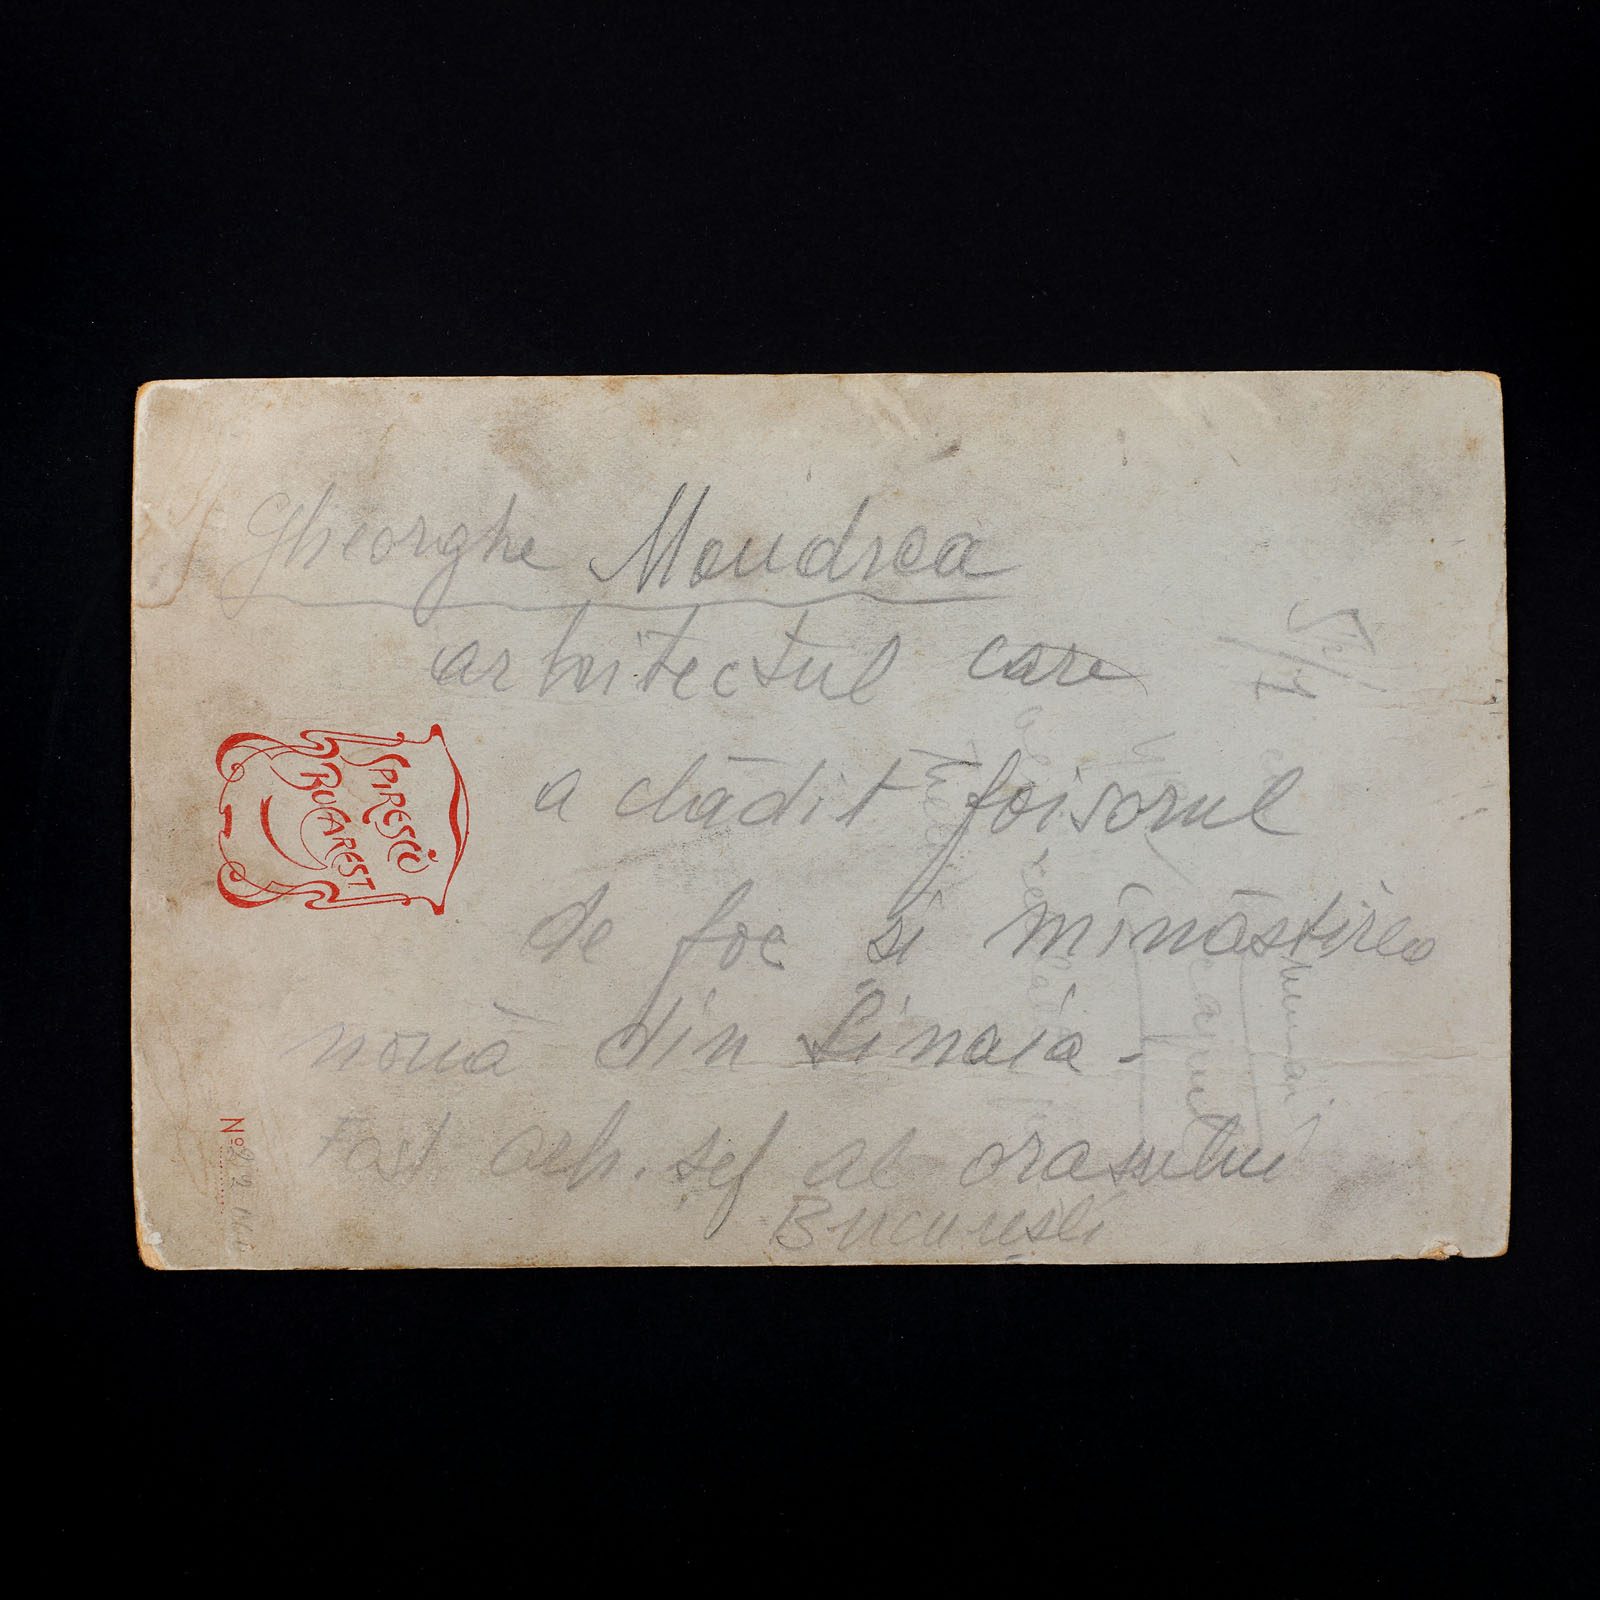 Gheorghe Mandrea
arhitectul care
a clădit foisorul
de foc si mînăstirea
nouă din Sinaia -
Fost arh. șef al orasului
București
SPIRESCŬ
BUCAREST
No 22